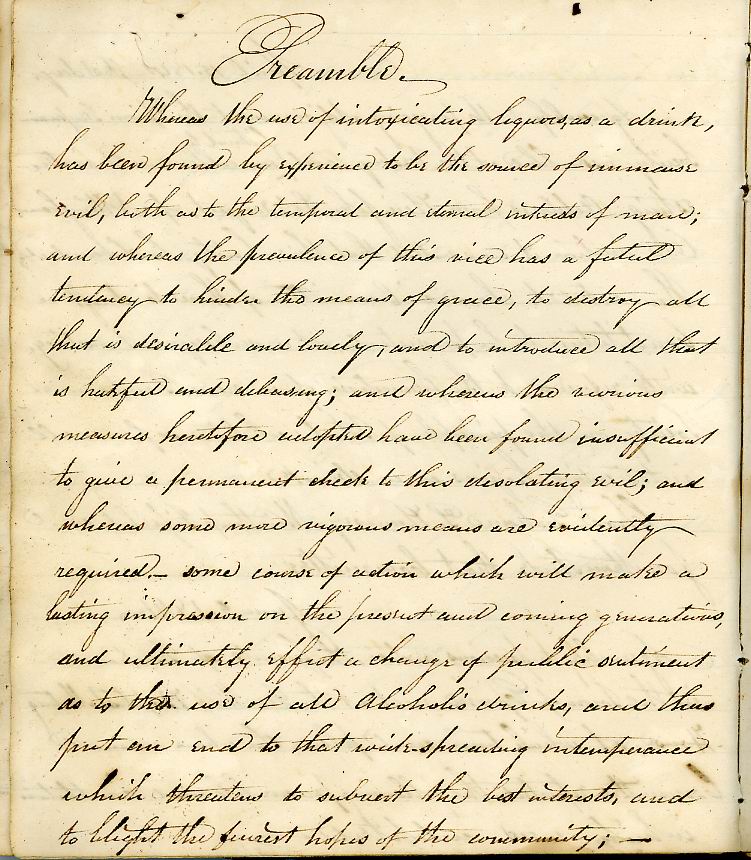 Preamble.
Whereas the use of intoxicating liquors, as a drink,
has been found by experience to be the source of immense
evil, both as to the temporal and eternal interests of man;
and whereas the prevalence of this vice has a fatal
tendency to hinder the means of grace, to destroy all
that is desirable and lovely, and to introduce all that
is hateful and debasing; and whereas the various
measures heretofore adopted have been found insufficient
to give a permanent check to this desolating evil; and
whereas some more vigorous means are evidently
required.— some course of action which will make a
lasting impression on the present and coming generations,
and ultimately effect a change of public sentiment
as to the use of all Alcoholic drinks, and thus
put an end to that wide-spreading intemperance
which threatens to subvert the best interests, and
to blight the fairest hopes of the community; —